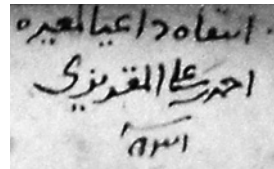 انتقاه داعيا لمعيره
احمد بن علي المقريزي